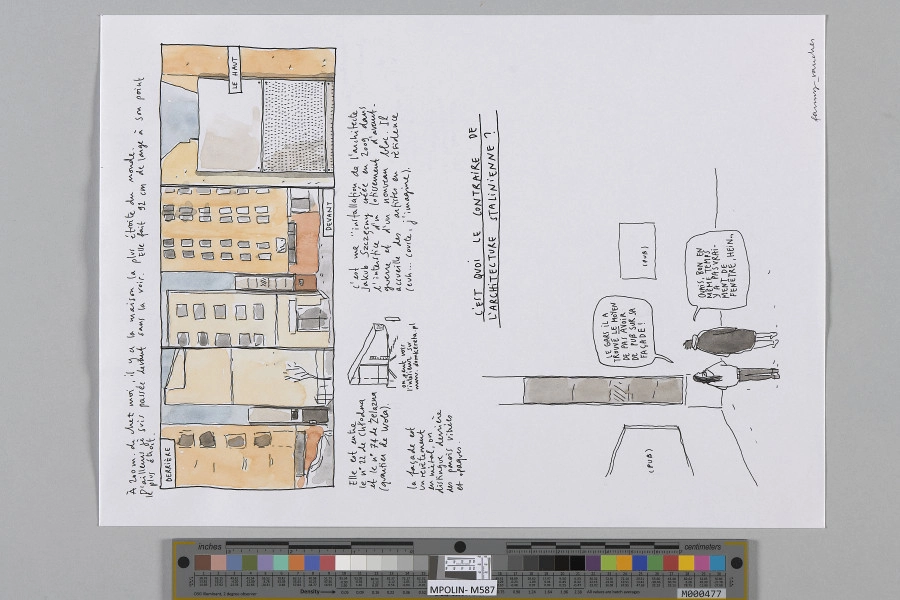 À 200 m. de chez moi, il y a la maison la plus étroite du monde.
D'ailleurs je suis passée devant sans la voir. Elle fait 92 cm de large à son point
le plus étroit.
DERRIÈRE
DEVANT
LE HAUT
Elle est entre
le n° 22 de Chłodna
et le n° 74 de Żelazna
(quartier de Wola).
on peut voir
l'intérieur sur
www.domkereta.pl
c'est une "installation de l'architecte
Jakub Szczęsny créée en 2009 dans
l'interstice d'un lotissement d'avant-
guerre et d'un nouveau bloc. Il
accueille des artistes en résidence
(euh... courte, j'imagine).
la façade est
un revêtement
en métal, on
distingue derrière
des parois vitrées
et opaques.
C'EST QUOI LE CONTRAIRE DE
L'ARCHITECTURE STALINIENNE ?
LE GARS IL A
TROUVÉ LE MOYEN
DE PAS AVOIR
DE PUB SUR SA
FAÇADE !
OUAIS, BON EN
MÊME TEMPS
Y A PAS VRAI-
MENT DE
FENÊTRE, HEIN...
(PUB)
(PUB)
fanny_vaucher
inches
centimetres
Density
MPOLIN- M587
M000477